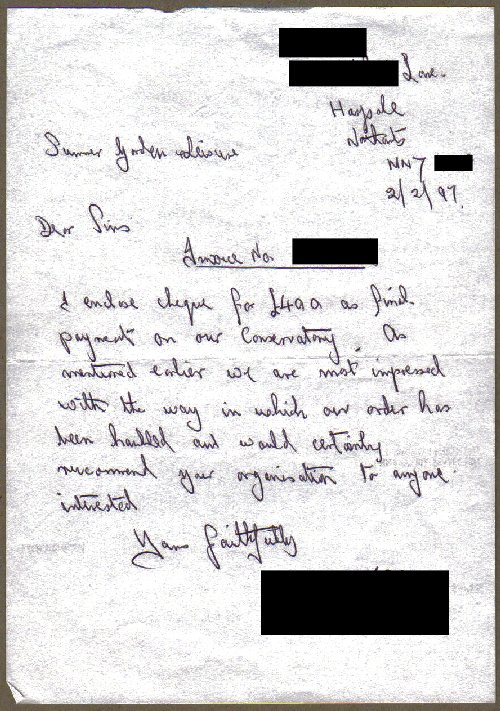 Lane.
Harpole
Northants
NN7
2/2/97.
Summer Garden Leisure
Dear Sirs
Invoice No
I enclose cheque for £499 as final
payment on our Conservatory. As
mentioned earlier we are most impressed
with the way in which our order has
been handled and would certainly
recommend your organisation to anyone
interested
Yours faithfully